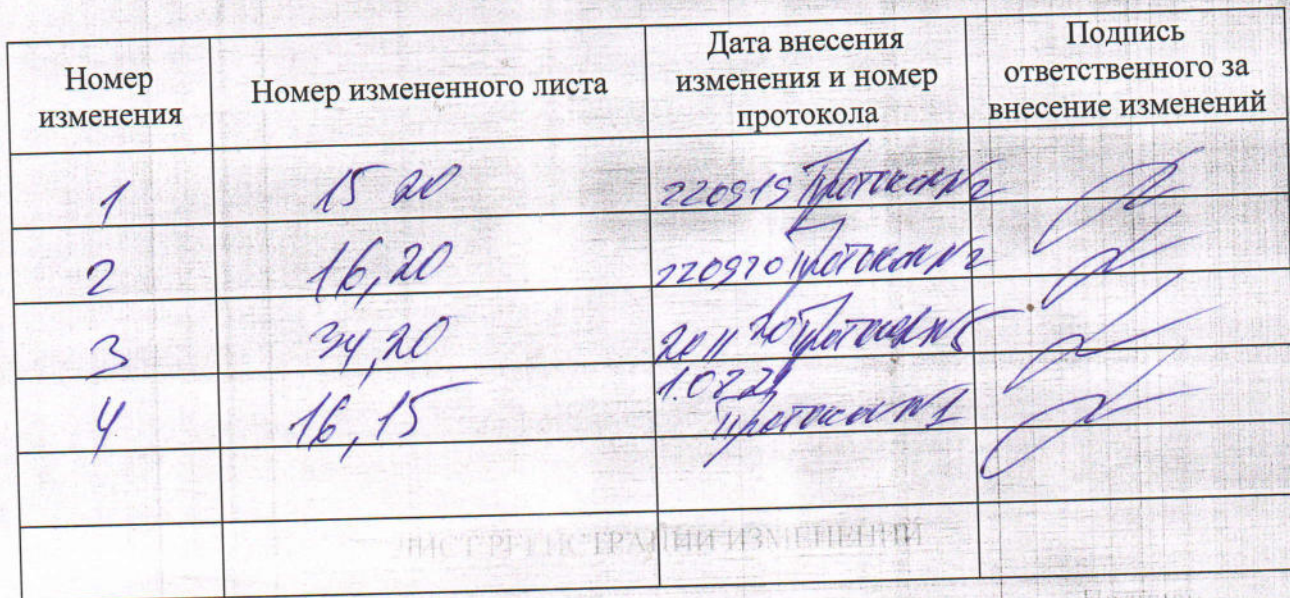 Номер изменения
Номер измененного листа
Дата внесения изменения и номер протокола
Подпись ответственного за внесение изменений
1 15 20 220919 Протокол №2
2 16,20 220920 Протокол №2
3 34,20 2011 20 Протокол
4 16,15
Протокол №1
ЛИСТ РЕГИСТРАЦИИ ИЗМЕНЕНИЙ